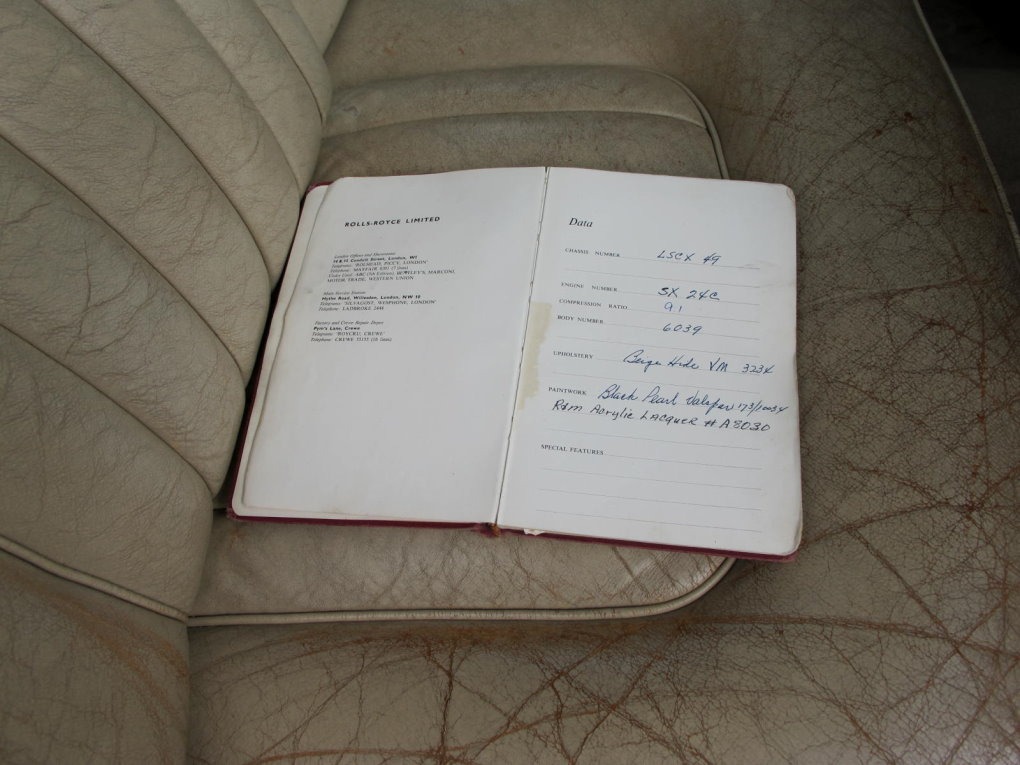 ROLLS-ROYCE LIMITED
London Offices and Showrooms
14 & 15 Conduit Street, London, W1
Telegrams: 'ROLHEAD, PICCY, LONDON'
Telephone: MAYFAIR 6201 (7 lines)
Codes Used: ABC (5th Edition), BENTLEY'S, MARCONI,
MOTOR TRADE, WESTERN UNION
Main Service Station
Hythe Road, Willesden, London, NW 10
Telegrams: 'SILVAGOST, WESPHONE, LONDON'
Telephone: LADBROKE 2444
Factory and Crewe Repair Depot
Pym's Lane, Crewe
Telegrams: 'ROYCRU, CREWE'
Telephone: CREWE 55155 lines)
Data
CHASSIS NUMBER LSCX 49
ENGINE NUMBER SX 24C
COMPRESSION RATIO 9.1
BODY NUMBER 6039
UPHOLSTERY Beige Hide VM 3234
PAINTWORK Black Pearl Valspar 173/10034
R&M Acrylic LACQUER # A8030
SPECIAL FEATURES